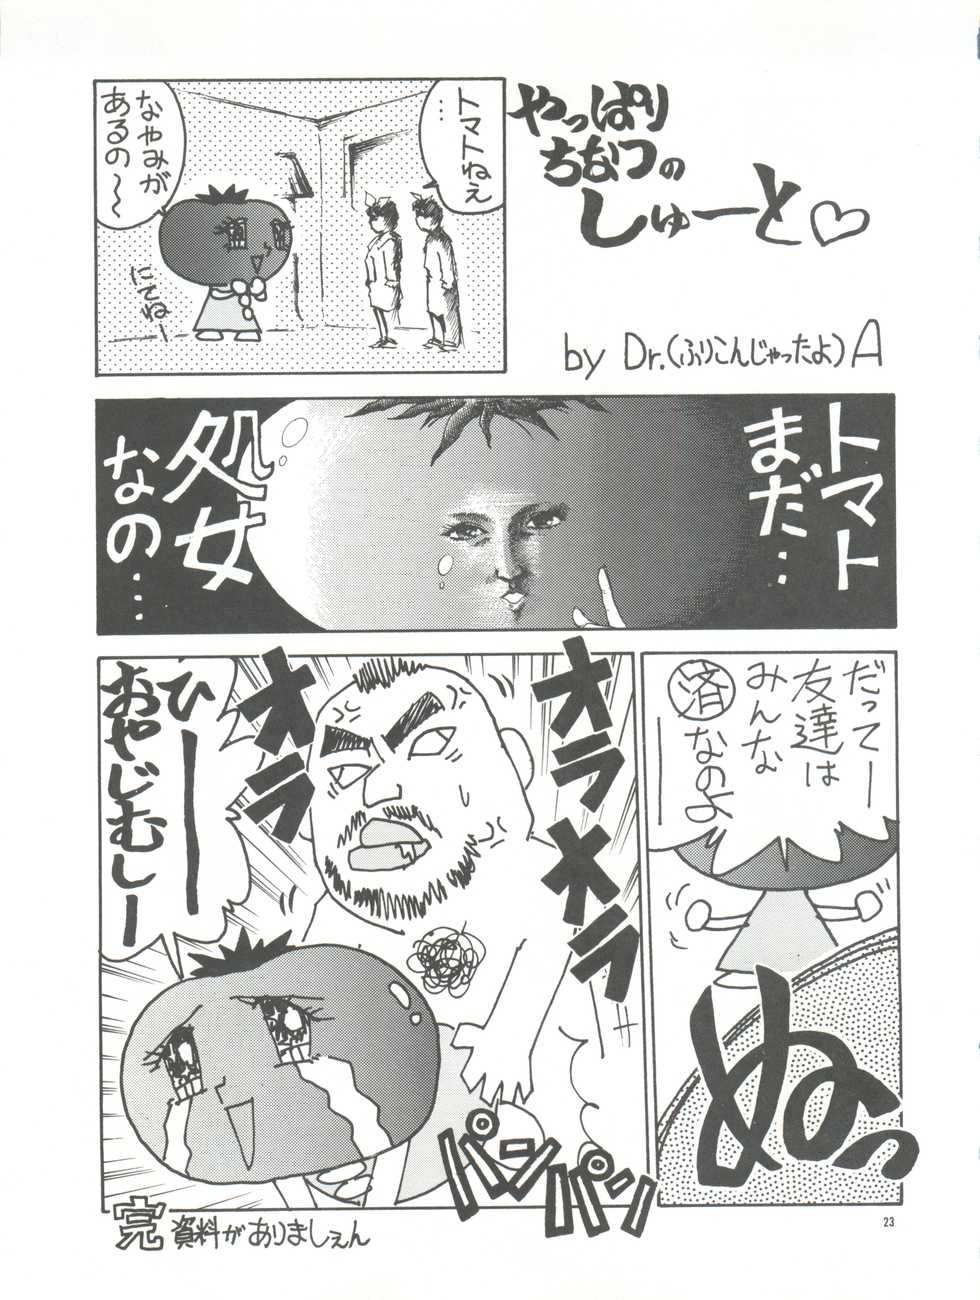 やっぱり
ちなつの
しゅーと♡
by Dr.(ふりこんじゃったよ)A
…
トマトねぇ
なやみが
あるの〜
にてねー
トマト
まだ…
処女
なの…
だってー
友達は
みんな
済なのよ
ー
ぬっ
オラ
オラ
オラ
オラ
ひーー
おやじむしー
パンパン
完 資料がありましぇん
23